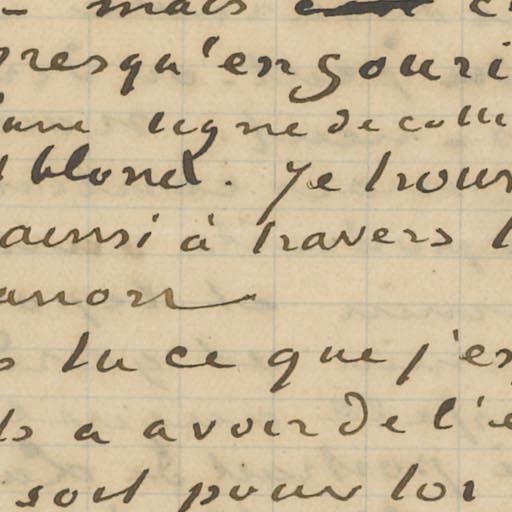 mais c
presqu'en gouri
une ligne de colli
blond. Je trouv
ainsi à travers l
anon
tu ce que j'es
ts a avoir de l'e
soit pour toi